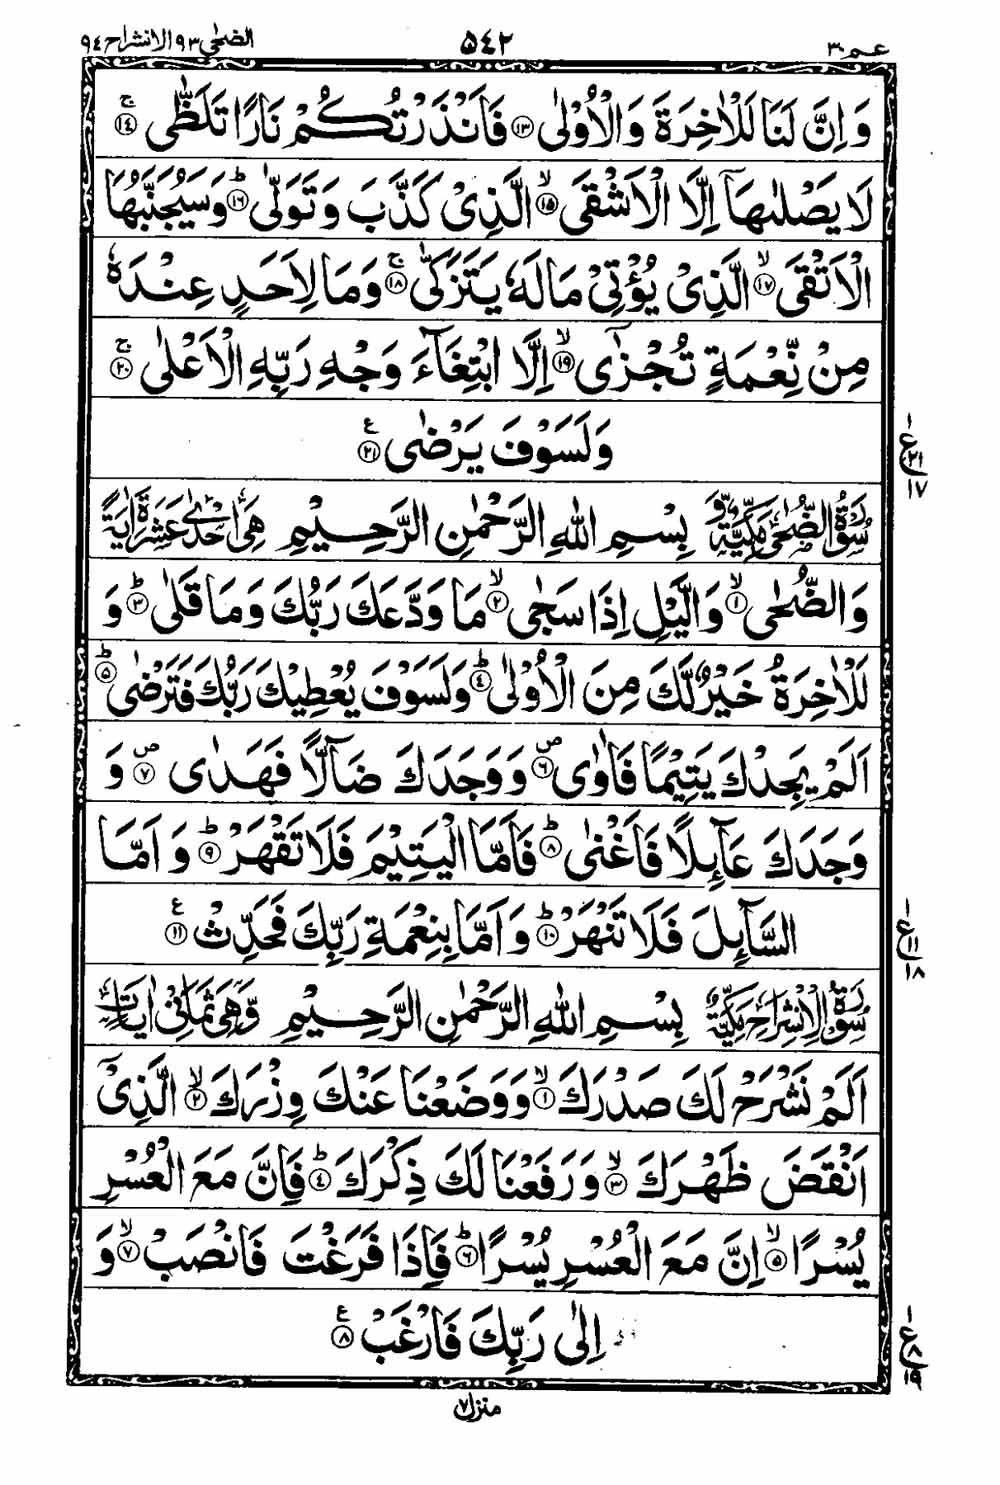 عم ٣٠ ٥٤٢ الضحى ٩٣ الانشراح ٩٤
وَاِنَّ لَنَا لَلْاٰخِرَةَ وَالْاُوْلٰى ۝١٣ فَاَنْذَرْتُكُمْ نَارًا تَلَظّٰى ۝١٤ۚ
لَا يَصْلٰىهَآ اِلَّا الْاَشْقَى ۝١٥ۙ الَّذِىْ كَذَّبَ وَتَوَلّٰى ۝١٦ؕ وَسَيُجَنَّبُهَا
الْاَتْقَى ۝١٧ۙ الَّذِىْ يُؤْتِىْ مَالَهٗ يَتَزَكّٰى ۝١٨ۚ وَمَا لِاَحَدٍ عِنْدَهٗ
مِنْ نِّعْمَةٍ تُجْزٰٓى ۝١٩ۙ اِلَّا ابْتِغَآءَ وَجْهِ رَبِّهِ الْاَعْلٰى ۝٢٠ۚ
وَلَسَوْفَ يَرْضٰى ۝٢١ ع
١ ع ٢١ ١٧
سُوْرَةُ الضُّحٰى مَكِّيَّةٌ وَّ بِسْمِ اللهِ الرَّحْمٰنِ الرَّحِيْمِ هِىَ اِحْدٰى عَشْرَةَ اٰيَةً
وَالضُّحٰى ۝١ۙ وَالَّيْلِ اِذَا سَجٰى ۝٢ۙ مَا وَدَّعَكَ رَبُّكَ وَمَا قَلٰى ۝٣ؕ وَ
لَلْاٰخِرَةُ خَيْرٌ لَّكَ مِنَ الْاُوْلٰى ۝٤ؕ وَلَسَوْفَ يُعْطِيْكَ رَبُّكَ فَتَرْضٰى ۝٥ؕ
اَلَمْ يَجِدْكَ يَتِيْمًا فَاٰوٰى ۝٦ص وَوَجَدَكَ ضَآلًّا فَهَدٰى ۝٧ص وَ
وَجَدَكَ عَآئِلًا فَاَغْنٰى ۝٨ؕ فَاَمَّا الْيَتِيْمَ فَلَا تَقْهَرْ ۝٩ؕ وَاَمَّا
السَّآئِلَ فَلَا تَنْهَرْ ۝١٠ؕ وَاَمَّا بِنِعْمَةِ رَبِّكَ فَحَدِّثْ ۝١١ ع
١ ع ١١ ١٨
سُوْرَةُ الْاِنْشِرَاحِ مَكِّيَّةٌ بِسْمِ اللهِ الرَّحْمٰنِ الرَّحِيْمِ وَّهِىَ ثَمَانِىْ اٰيَاتٍ
اَلَمْ نَشْرَحْ لَكَ صَدْرَكَ ۝١ۙ وَوَضَعْنَا عَنْكَ وِزْرَكَ ۝٢ۙ الَّذِىْٓ
اَنْقَضَ ظَهْرَكَ ۝٣ۙ وَرَفَعْنَا لَكَ ذِكْرَكَ ۝٤ؕ فَاِنَّ مَعَ الْعُسْرِ
يُسْرًا ۝٥ۙ اِنَّ مَعَ الْعُسْرِ يُسْرًا ۝٦ؕ فَاِذَا فَرَغْتَ فَانْصَبْ ۝٧ۙ وَ
اِلٰى رَبِّكَ فَارْغَبْ ۝٨ ع
١ ع ٨ ١٩
منزل ٧